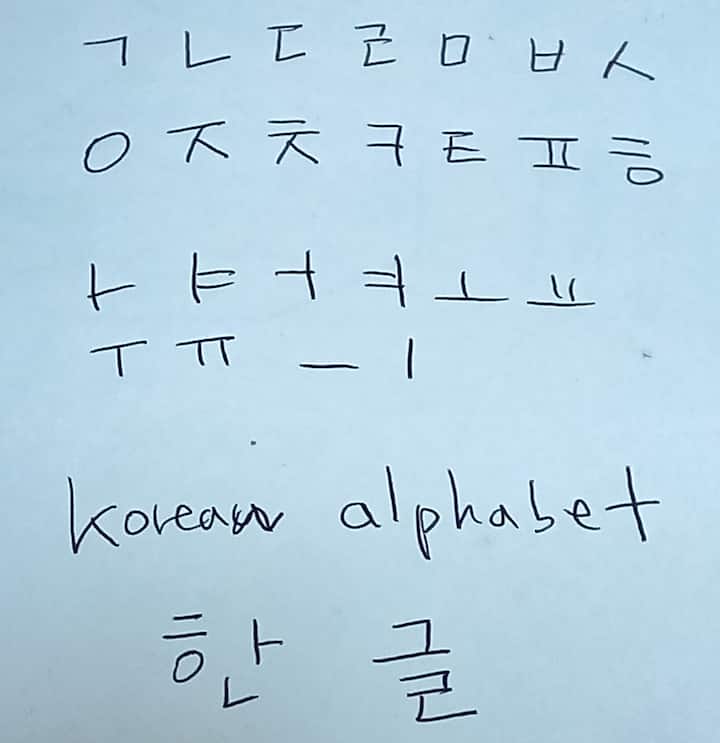 ㄱ ㄴ ㄷ ㄹ ㅁ ㅂ ㅅ
ㅇ ㅈ ㅊ ㅋ ㅌ ㅍ ㅎ
ㅏ ㅑ ㅓ ㅕ ㅗ ㅛ
ㅜ ㅠ ㅡ ㅣ
korean alphabet
한 글